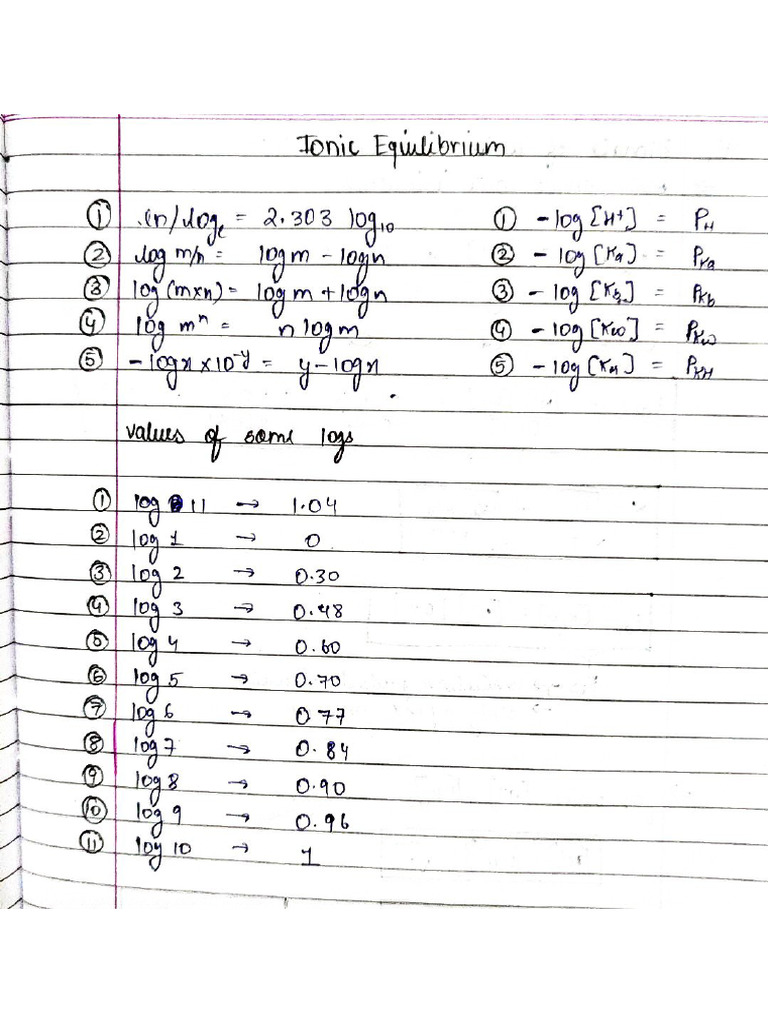 Ionic Equilibrium
① ln/loge = 2.303 log10 ① -log [H+] = PH
② log m/n = log m - log n ② - log [Ka] = Pka
③ log (m×n) = log m + log n ③ - log [Kb] = Pkb
④ log mⁿ = n log m ④ - log [Kw] = PKw
⑤ - log x × 10⁻ʸ = y - log x ⑤ - log [KH] = PKH
values of some logs
① log 11 → 1.04
② log 1 → 0
③ log 2 → 0.30
④ log 3 → 0.48
⑤ log 4 → 0.60
⑥ log 5 → 0.70
⑦ log 6 → 0 77
⑧ log 7 → 0.84
⑨ log 8 → 0.90
⑩ log 9 → 0.96
⑪ log 10 → 1